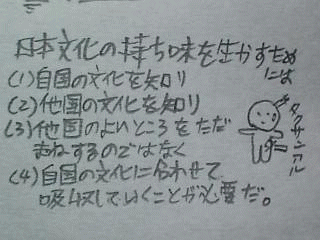 日本文化の持ち味を生かすため
には
(1)自国の文化を知り
(2)他国の文化を知り
(3)他国のよいところをただ
まねするのではなく
(4)自国の文化に合わせて
吸収していくことが必要だ。
タクサンアル